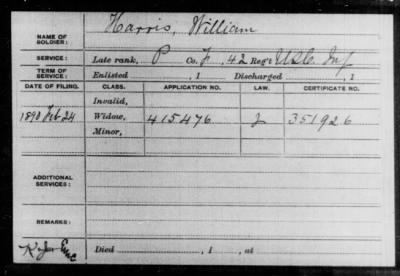 Harris, William
NAME OF SOLDIER:
SERVICE: Late rank, P Co. F, 42 Reg't U.S.C. Inf
TERM OF SERVICE: Enlisted , 1 Discharged , 1
DATE OF FILING. CLASS. APPLICATION NO. LAW. CERTIFICATE NO.
Invalid,
1890 Feb 24 Widow, 415476 J 351926
Minor,
ADDITIONAL SERVICES:
REMARKS:
Died , 1 , at